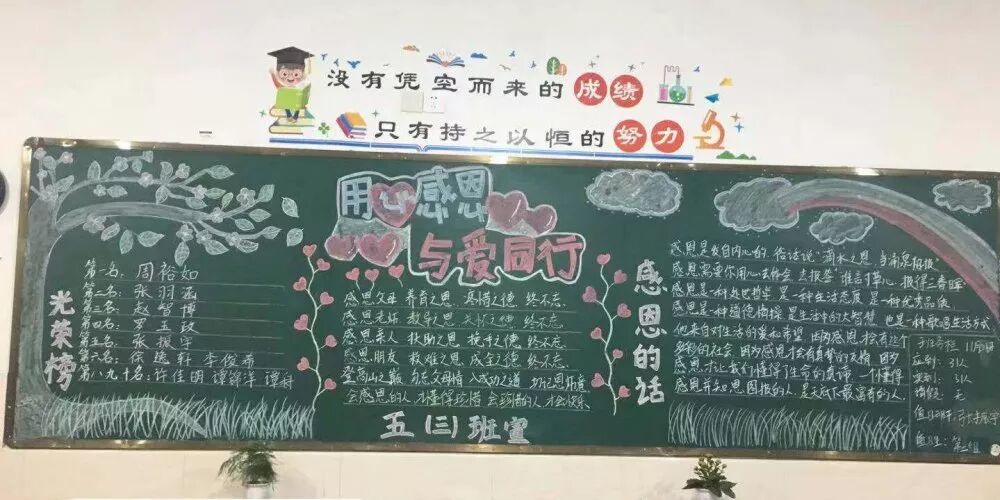 没有凭空而来的成绩
只有持之以恒的努力
用心感恩
与爱同行
光荣榜
第一名:周裕如
第二名:张羽涵
第三名:赵智博
第四名:罗玉玫
第五名:张振宇
第六名:徐逸轩 李俊希
第八九十名:许佳明 谭锦洋 谭科
感恩父母 养育之恩 真情之德 终不忘
感恩老师 教导之恩 关怀之德 终不忘
感恩亲人 扶助之恩 携手之德 终不忘
感恩朋友 救难之恩 成全之德 终不忘
登高山之巅 勿忘父母情 入成功之道 切记恩师道
会感恩的人 才懂得珍惜 会珍惜的人 才会快乐
五(三)班宣
感恩的话
感恩是发自内心的 俗话说“滴水之恩 当涌泉相报
感恩需要你用心去体会 去报答 谁言寸草心 报得三春晖
感恩是一种处世哲学 是一种生活态度 是一种优秀品质
感恩是一种道德情操 是生活中的大智慧 也是一种歌唱生活方式
他来自对生活的爱和希望 因为感恩才会有这个
多彩的社会 因为感恩才会有真挚的友情 因为
感恩才让我们懂得了生命的真谛 一个懂得
感恩并知恩图报的人,是天底下最富有的人.
班务栏 11月
应到:31人
实到:31人
请假:无
值日班干:
值日生:第二组